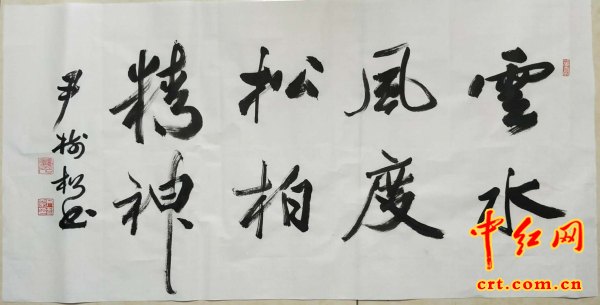 雲水
風度
松柏
精神
尹 松书
中红网
crt.com.cn